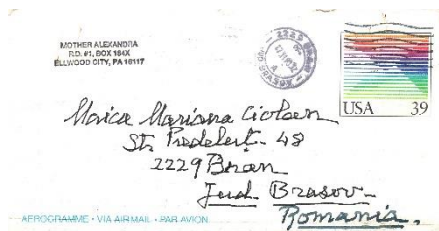 MOTHER ALEXANDRA
R.D. #1, BOX 184X
ELLWOOD CITY, PA 16117
2229 BRAN
USA 39
Maica Mariana Cioban
Str. Predeluț 48
2229 Bran
Jud. Brasov
Romania.
AEROGRAMME • VIA AIRMAIL • PAR AVION